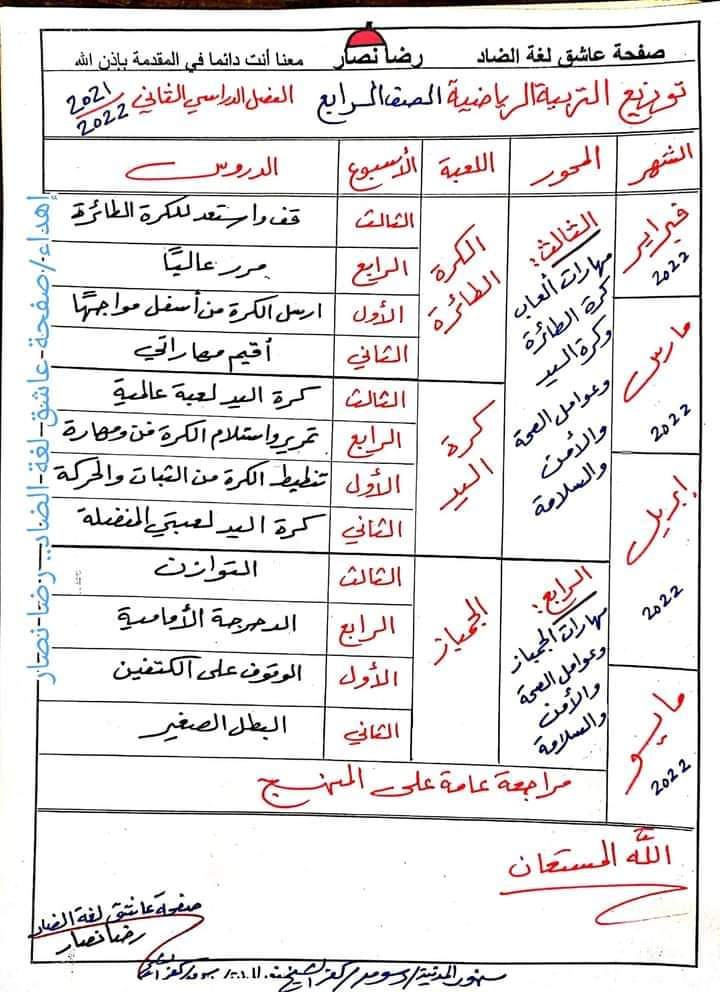 صفحة عاشق لغة الضاد رضا نصار معنا أنت دائما في المقدمة بإذن الله
توزيع التربية الرياضية الصف الرابع الفصل الدراسي الثاني 2021/2022
الشهر المحور اللعبة الأسبوع الدروس
فبراير 2022
مارس 2022
إبريل 2022
مايو 2022
الثالث:
مهارات ألعاب
كرة الطائرة
وكرة اليد
وعوامل الصحة
والأمن
والسلامة
الرابع:
مهارات الجمباز
وعوامل الصحة
والأمن
والسلامة
الكرة الطائرة
كرة اليد
الجمباز
الثالث قف واستعد للكرة الطائرة
الرابع مرر عاليًا
الأول ارسل الكرة من أسفل مواجهًا
الثاني أقيم مهاراتي
الثالث كرة اليد لعبة عالمية
الرابع تمرير واستلام الكرة فن ومهارة
الأول تنطيط الكرة من الثبات والحركة
الثاني كرة اليد لعبتي المفضلة
الثالث التوازن
الرابع الدحرجة الأمامية
الأول الوقوف على الكتفين
الثاني البطل الصغير
مراجعة عامة على المنهج
الله المستعان
صفحة عاشق لغة الضاد
رضا نصار
إهداء/صفحة-عاشق-لغة-الضاد-رضا-نصار